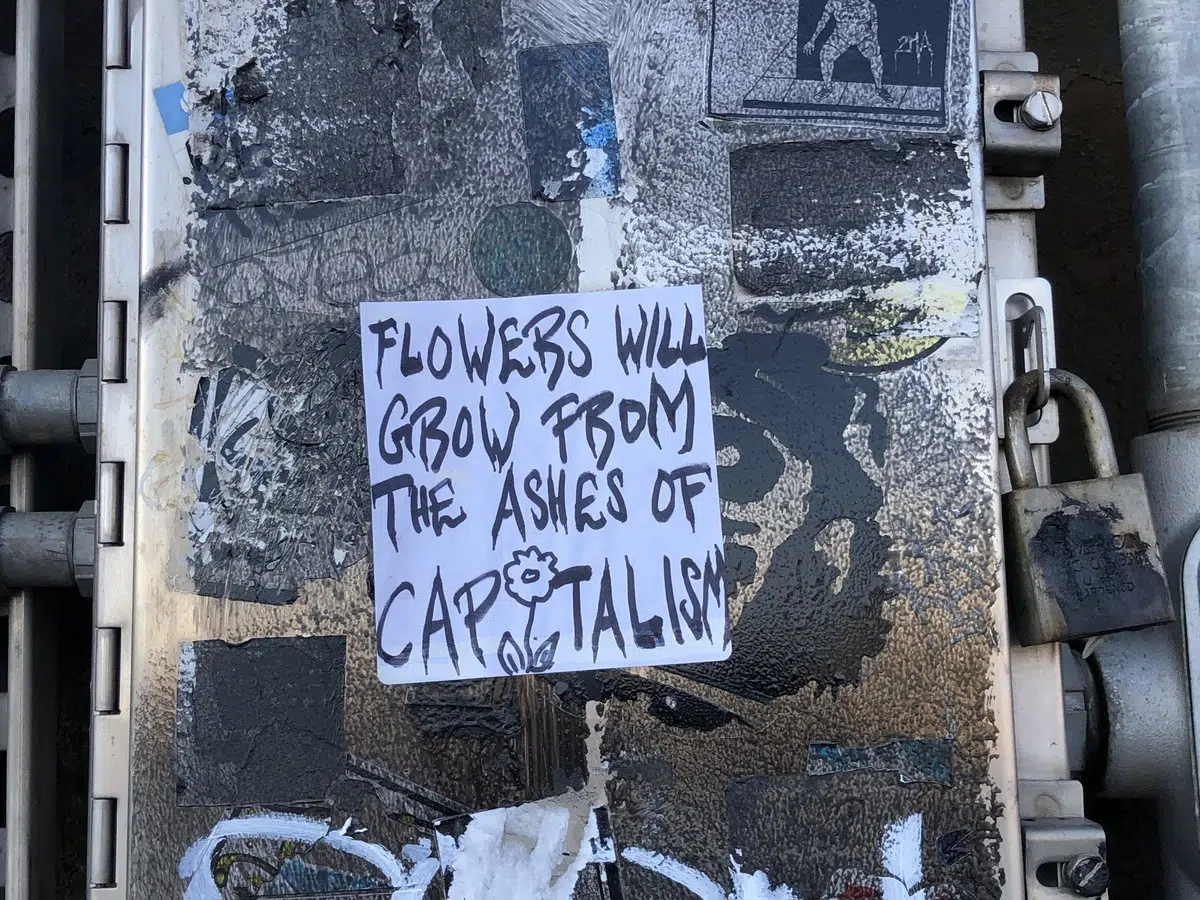 2MA
FLOWERS WILL
GROW FROM
THE ASHES OF
CAPITALISM